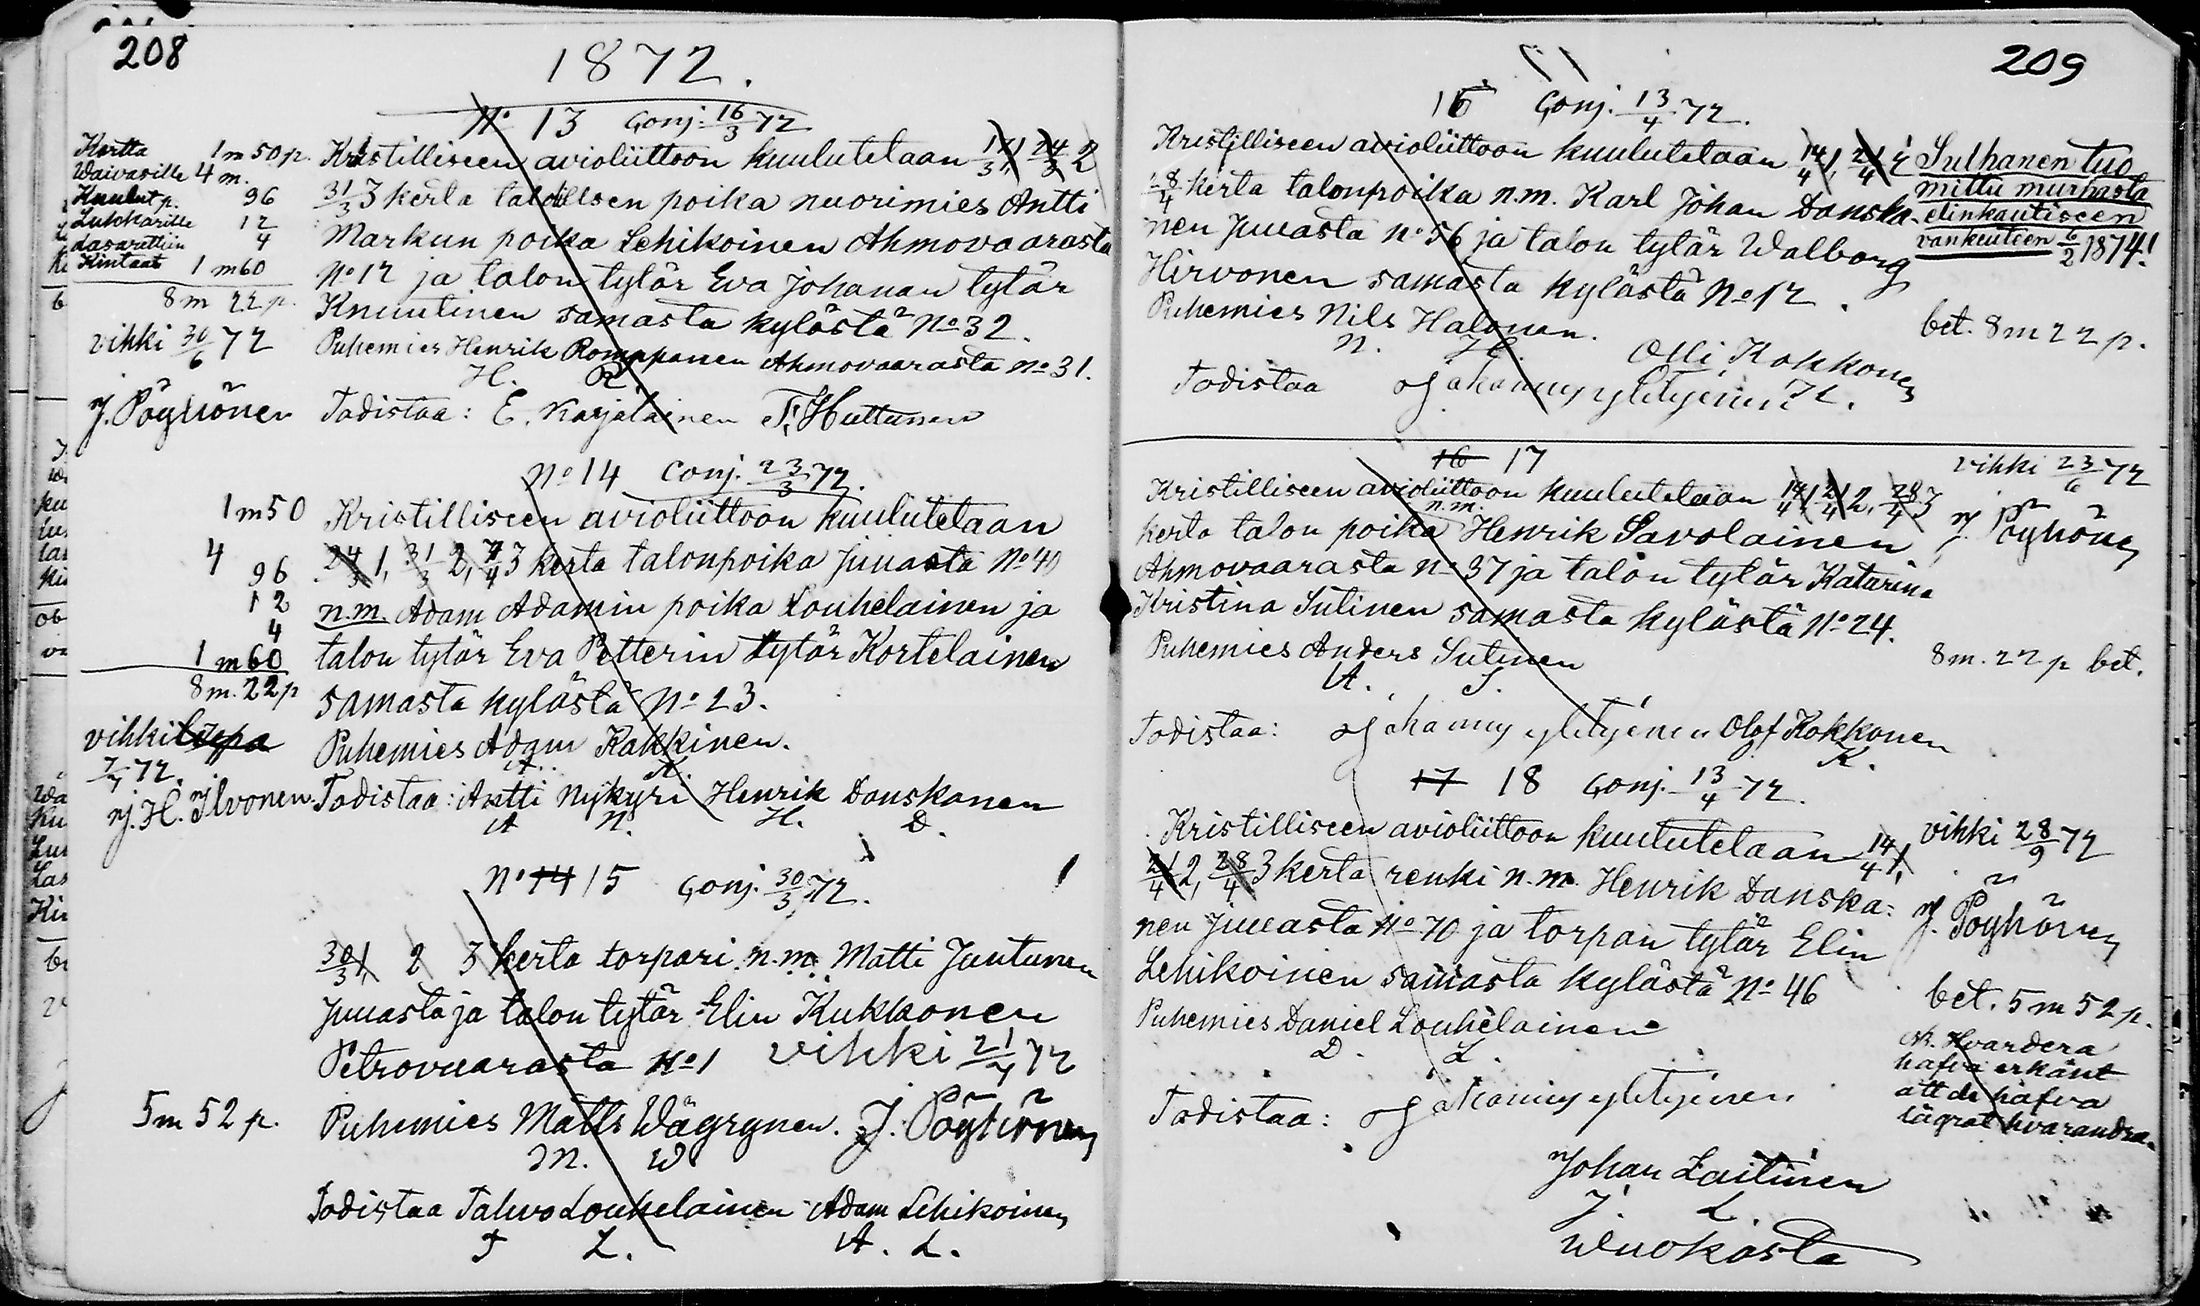 208
1872.
No 13 Conj. 16/3 72
Kartta 1 m 50 p.
Waivasille 4 m.
Kuulut p. 96
Lukkarille 12
Lasarettiin 4
Kintaat 1 m 60
8 m 22 p.
vihki 30/6 72
J. Pöyhönen
Kristilliseen avioliittoon kuulutetaan 17/3 1, 24/3 2
31/3 3 kerta talollisen poika nuorimies Antti
Markun poika Lehikoinen Ahmovaarasta
No 12 ja talon tytär Eva Johanan tytär
Knuutinen samasta kylästä No 32.
Puhemies Henrik Romppanen Ahmovaarasta No 31.
H. R
Todistaa: E. Karjalainen T. Huttunen
No 14 Conj. 23/3 72.
1 m 50
4
96
12
4
1 m 60
8 m. 22 p
vihki
7/7 72.
J. H. Ilvonen
Kristilliseen avioliittoon kuulutetaan
24/3 1, 31/3 2, 7/4 3 kerta talonpoika Juuasta No 40
n.m. Adam Adamin poika Louhelainen ja
talon tytär Eva Petterin tytär Kortelainen
samasta kylästä No 23.
Puhemies Adam Kakkinen.
A. K.
Todistaa: Antti Nykyri Henrik Danskanen
A N. H. D.
No 14 15 Conj. 30/3 72.
30/3 1 2 3 kerta torpari n.m. Matti Juutunen
Juuasta ja talon tytär Elin Kukkonen
Petrovaarasta No 1 vihki 21/7 72
5 m 52 p.
Puhemies Matts Wägrynen. J. Pöyhönen
M. W
Todistaa Tahvo Louhelainen Adam Lehikoinen
T L. A. L.
209
16 Conj. 13/4 72.
Kristilliseen avioliittoon kuulutetaan 14/4 1, 21/4 2
28/4 kerta talonpoika n.m. Karl Johan Danska-
nen Juuasta No 56 ja talon tytär Walborg
Hirvonen samasta kylästä No 12.
Puhemies Nils Halonen.
N. H.
Olli Kokkonen
Todistaa Johanny yletyinen K.
Sulhanen tuo
mittu murhasta
elinkautiseen
vankeuteen 6/2 1874!
bet. 8 m 22 p.
16 17
Kristilliseen avioliittoon kuulutetaan 14/4 1, 21/4 2, 28/4 3
kerta talon poika n.m. Henrik Savolainen
Ahmovaarasta No 37 ja talon tytär Katarina
Kristina Sutinen samasta kylästä No 24.
Puhemies Anders Sutinen
A. S.
Todistaa: Johanny yletyinen Olof Kokkonen
K.
vihki 23/6 72
J. Pöyhönen
8 m. 22 p bet.
17 18 Conj. 13/4 72.
Kristilliseen avioliittoon kuulutetaan 14/4 1,
21/4 2, 28/4 3 kerta renki n.m. Henrik Danska:
nen Juuasta No 70 ja torpan tytär Elin
Lehikoinen samasta kylästä No 46
Puhemies Daniel Louhelainen
D. L.
Todistaa: Johanny yletyinen
Johan Laitinen
J. L.
Wuokosta
vihki 28/9 72
J. Pöyhönen
bet. 5 m 52 p.
Hvardera
hafva erkänt
att de hafva
lägrat hvarandra.